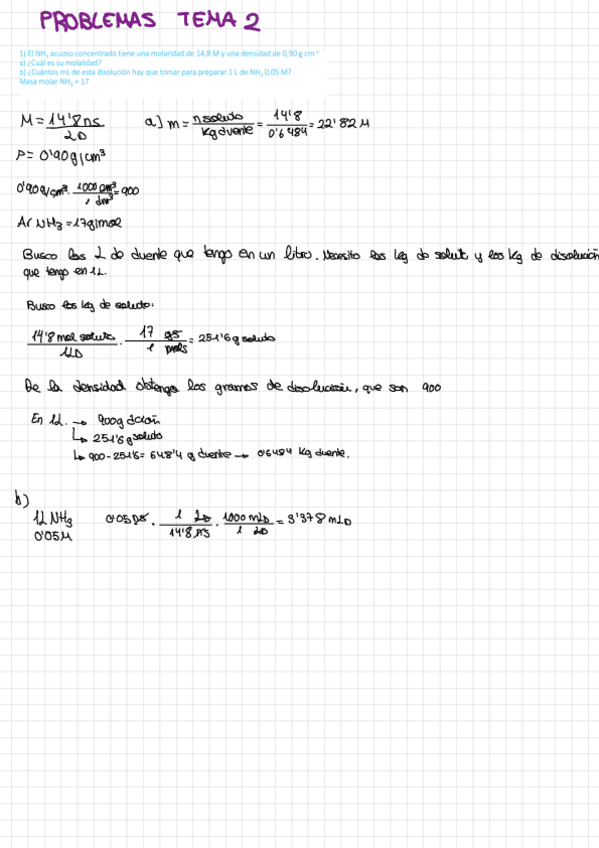 PROBLEMAS TEMA 2
1) El NH₃ acuoso concentrado tiene una molaridad de 14,8 M y una densidad de 0,90 g cm⁻³
a) ¿Cuál es su molalidad?
b) ¿Cuántos mL de esta disolución hay que tomar para preparar 1 L de NH₃ 0,05 M?
Masa molar NH₃ = 17
M = 14'8 ns / LD a) m = n soluto / Kg dvente = 14'8 / 0'6484 = 22'82 M
ρ = 0'90 g/cm³
0'90 g/cm³ · 1000 cm³ / 1 dm³ = 900
Ar NH₃ = 17 g/mol
Busco los L de dvente que tengo en un litro. Necesito los kg de solut y los Kg de disolución
que tengo en 1L.
Busco los kg de soluto:
14'8 mol soluto / 1LD · 17 gs / 1 mols = 251'6 g soluto
De la densidad obtengo los gramos de disolución, que son 900
En 1L. → 900g dción
↳ 251'6 g soluto
↳ 900 - 251'6 = 648'4 g dvente → 0'6484 Kg dvente.
b)
1L NH₃ 0'05 ns · 1 LD / 14'8 ns · 1000 mLD / 1 LD = 3'378 mLD
0'05M